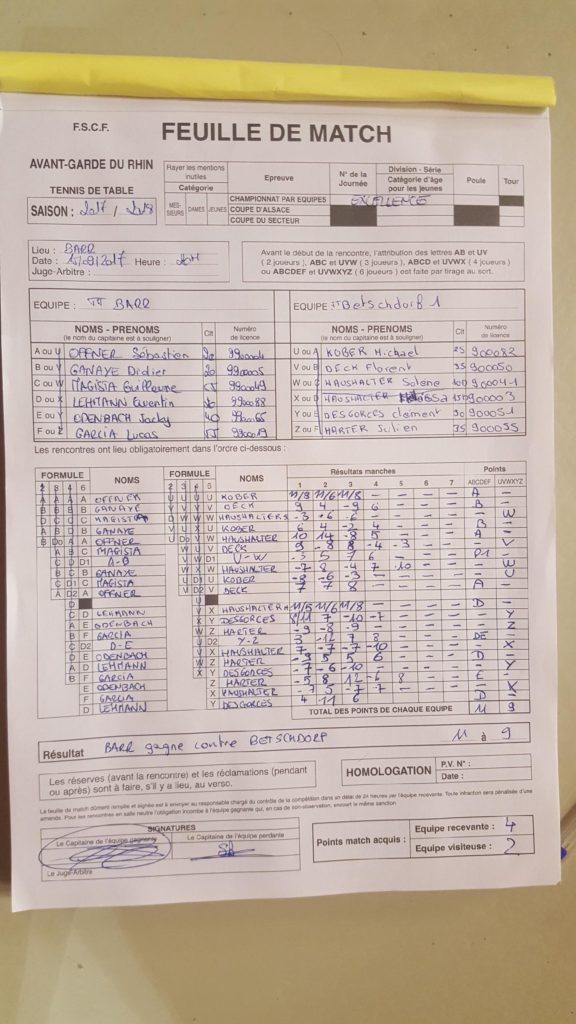 F.S.C.F.
FEUILLE DE MATCH
AVANT-GARDE DU RHIN
TENNIS DE TABLE
SAISON : 2017 / 2018
Rayer les mentions inutiles
Catégorie
MES-SIEURS DAMES JEUNES
Epreuve
CHAMPIONNAT PAR EQUIPES
COUPE D'ALSACE
COUPE DU SECTEUR
N° de la Journée
Division - Série
Catégorie d'âge pour les jeunes
EXCELLENCE
Poule
Tour
Lieu : BARR
Date : 15/09/2017 Heure : 20H
Juge-Arbitre :
Avant le début de la rencontre, l'attribution des lettres AB et UV
( 2 joueurs ), ABC et UVW ( 3 joueurs ), ABCD et UVWX ( 4 joueurs )
ou ABCDEF et UVWXYZ ( 6 joueurs ) est faite par tirage au sort.
EQUIPE : TT BARR
EQUIPE : Betschdorf 1
NOMS - PRENOMS Clt Numéro de licence
(le nom du capitaine est à souligner)
NOMS - PRENOMS Clt Numéro de licence
(le nom du capitaine est à souligner)
A ou U OFFNER Sébastien
U ou A KOBER Michael 25 900082
B ou V GANAYE Didier
V ou B DECK Florent 35 900050
C ou W MAGISTA Guillaume
W ou C HAUSHALTER Solene 900041
D ou X LEHMANN Quentin
X ou D HAUSHALTER
E ou Y ODENBACH Jacky 40
Y ou E DESGORCES clement 30 900051
F ou Z GARCIA Lucas
Z ou F HARTER Julien 35 900035
Les rencontres ont lieu obligatoirement dans l'ordre ci-dessous :
FORMULE NOMS FORMULE NOMS Résultats manches Points
2 3 4 6 2 3 4 6 1 2 3 4 5 6 7 ABCDEF UVWXYZ
OFFNER KOBER 11/9 11/6 11/8 - - - - A -
GANAYE DECK 9 4 -9 6 - - - B -
MAGISTA HAUSHALTER S -3 -6 -6 - - - - - W
GANAYE KOBER 6 4 -2 4 - - - B -
OFFNER HAUSHALTER 10 14 -8 5 - - - A -
MAGISTA DECK 9 -8 -8 -4 -3 - - - V
A-B U-W 5 5 7 6
GANAYE HAUSHALTER -7 8 -4 7 -10 - - - W
MAGISTA KOBER -8 -6 -3 - - - - - U
OFFNER DECK 7 7 8 - - - - A -
LEHMANN HAUSHALTER 11/5 11/6 11/8 - - - - D -
ODENBACH DESGORCES 8/11 7 -10 -7 - - - - Y
GARCIA HARTER -9 -8 -9 - - - - - Z
D-E Y-Z 3 -12 7 8 - - - DE -
ODENBACH HAUSHALTER 7 -7 -7 -10 - - - - X
LEHMANN HARTER -9 5 5 6 - - - D -
GARCIA DESGORCES -7 -6 -10 - - - - - Y
ODENBACH HARTER -5 8 12 -6 8 - - E -
GARCIA HAUSHALTER -7 5 -7 -7 - - - - X
LEHMANN DESGORCES 4 11 6 - - - - D -
TOTAL DES POINTS DE CHAQUE EQUIPE 11 9
Résultat BARR gagne contre BETSCHDORF 11 à 9
Les réserves (avant la rencontre) et les réclamations (pendant
ou après) sont à faire, s'il y a lieu, au verso.
HOMOLOGATION P.V. N° :
Date :
La feuille de match dûment remplie et signée est à envoyer au responsable chargé du contrôle de la compétition dans un délai de 24 heures par l'équipe recevante. Toute infraction sera pénalisée d'une
amende. Pour les rencontres en salle neutre l'obligation incombe à l'équipe gagnante qui, en cas de non-observation, encourt la même sanction.
SIGNATURES
Le Capitaine de l'équipe gagnante
Le Capitaine de l'équipe perdante
Le Juge-Arbitre
Points match acquis :
Equipe recevante : 4
Equipe visiteuse : 2